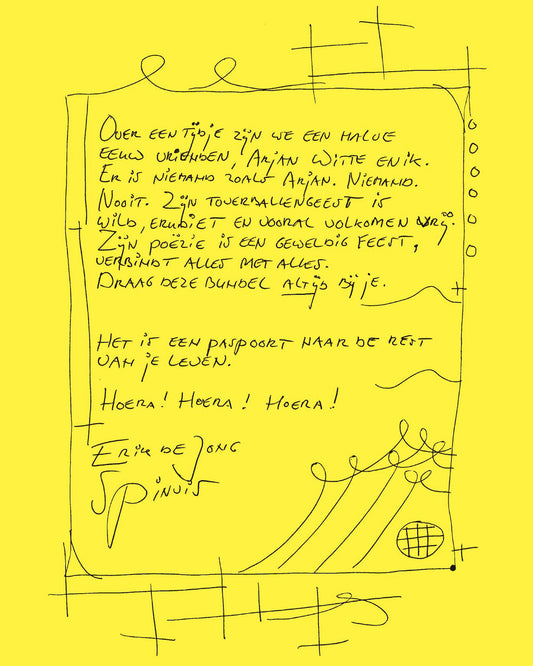 Over een tijdje zijn we een halve
eeuw vrienden, Arjan Witte en ik.
Er is niemand zoals Arjan. Niemand.
Nooit. Zijn toverballengeest is
wild, erudiet en vooral volkomen vrij.
Zijn poëzie is een geweldig feest,
verbindt alles met alles.
Draag deze bundel altijd bij je.
Het is een paspoort naar de rest
van je leven.
Hoera! Hoera! Hoera!
Erik de Jong
Spinvis